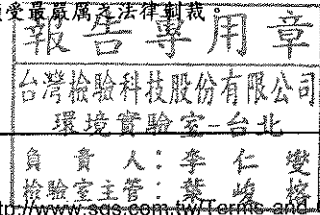 受最嚴厲之法律制裁。
報告專用章
台灣檢驗科技股份有限公司
環境實驗室-台北
負責人：李仁燮
檢驗室主管：葉峻榕
http://www.sgs.com.tw/Terms-and